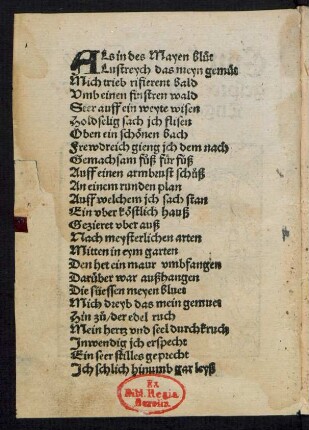 ALs in des Mayen blüt
Lustreych das meyn gemüt
Mich trieb refierent bald
Vmb einen finstren wald
Seer auff ein weyte wisen
Holdselig sach ich flisen
Oben ein schönen bach
Frewdreich gieng ich dem nach
Gemachsam füß für füß
Auff einen armbrust schüß
An einem runden plan
Auff welchem ich sach stan
Ein vber köstlich hauß
Gezieret vber auß
Nach meysterlichen arten
Mitten in eym garten
Den het ein maur vmbfangen
Darüber war außhangen
Die süessen meyen bluet
Mich dreyb das mein gemuet
Hin zů/ der edel ruch
Mein hertz vnd seel durchkruch
Inwendig ich erspecht
Ein seer stilles geprecht
Ich schlich hinumb gar leyß
Ex
Bibl. Regia
Berolin.